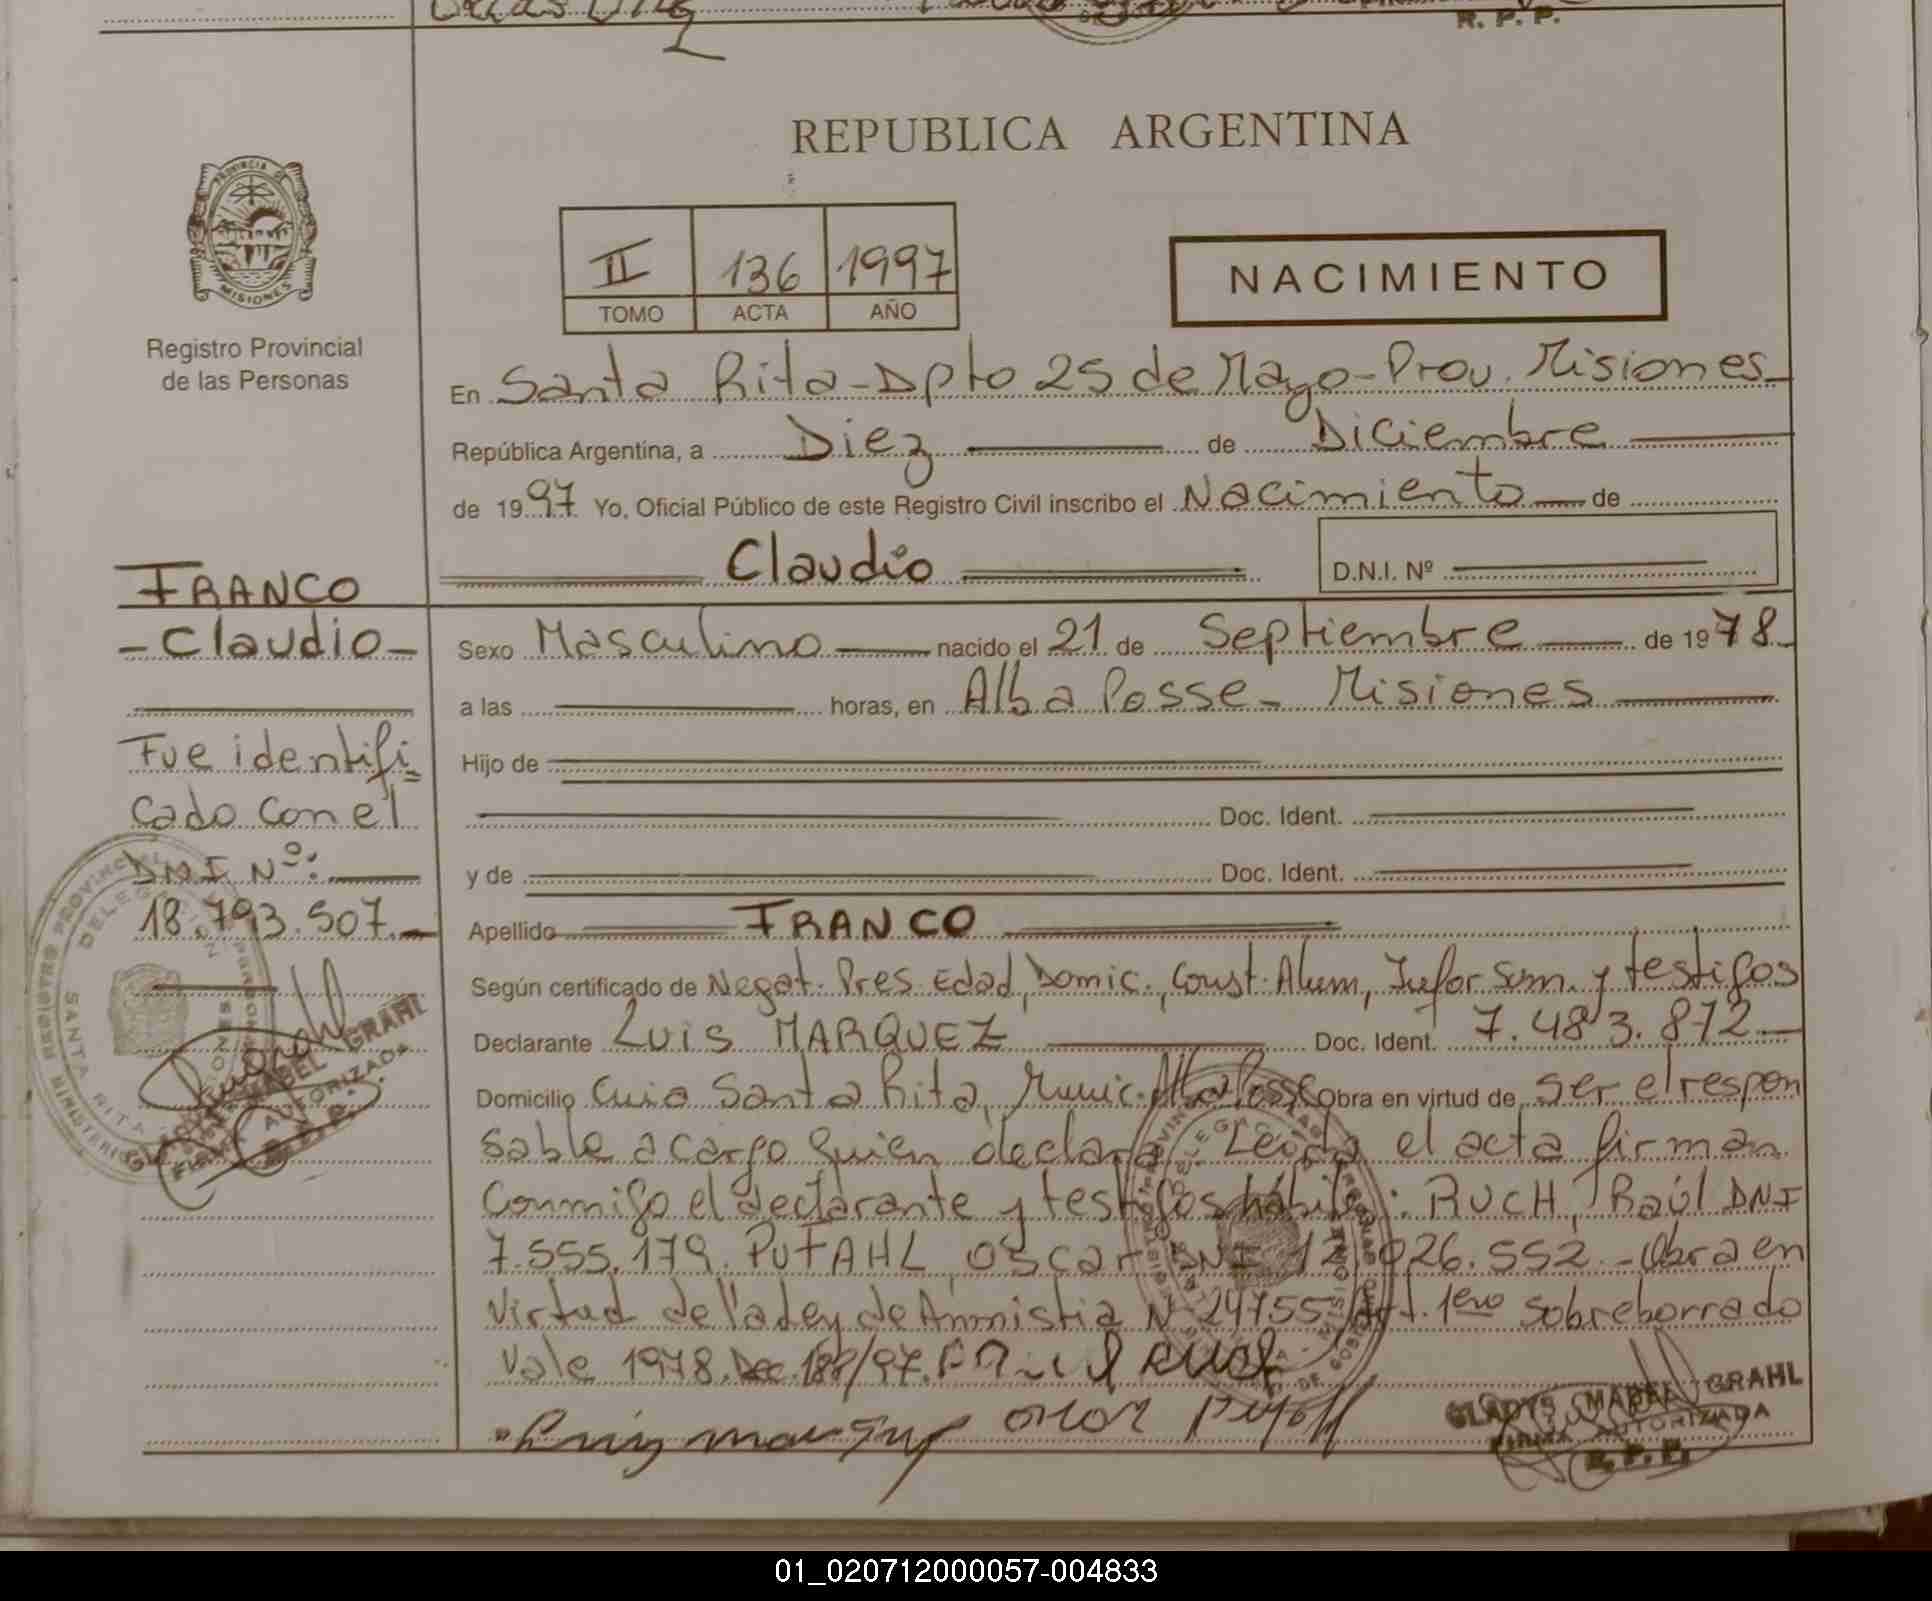 R. P. P.
REPUBLICA ARGENTINA
PROVINCIA DE
MISIONES
Registro Provincial
de las Personas
II 136 1997
TOMO ACTA AÑO
NACIMIENTO
En Santa Rita-Dpto 25 de Mayo-Prov. Misiones
República Argentina, a Diez de Diciembre
de 1997 Yo, Oficial Público de este Registro Civil inscribo el Nacimiento de
Claudio D.N.I. Nº
FRANCO
-Claudio-
Fue identifi
cado con el
DNI Nº:
18.793.507.
Sexo Masculino nacido el 21 de Septiembre de 1978
a las horas, en Alba Posse- Misiones
Hijo de
Doc. Ident.
y de Doc. Ident.
Apellido FRANCO
Según certificado de Negat. Pres. Edad, Domic., Const. Alum, Infor Sum. y testigos
Declarante LUIS MARQUEZ Doc. Ident. 7.483.872
Domicilio Santa Rita, Munic. Alba Posse Obra en virtud de ser el respon
sable a cargo quien declara Leída el acta firman
conmigo el declarante y testigos hábiles: RUCH, Raúl DNI
7.555.179. PUTAHL OSCAR DNI 12.026.552 -Obra en
virtud de la Ley de Amnistia Nº 24755 Art. 1ero sobreborrado
Vale 1978. Dec. 188/97.
GLADYS MABEL GRAHL
FIRMA AUTORIZADA
R. P. P.
GLADYS MABEL GRAHL
FIRMA AUTORIZADA
R. P. P.
01_020712000057-004833